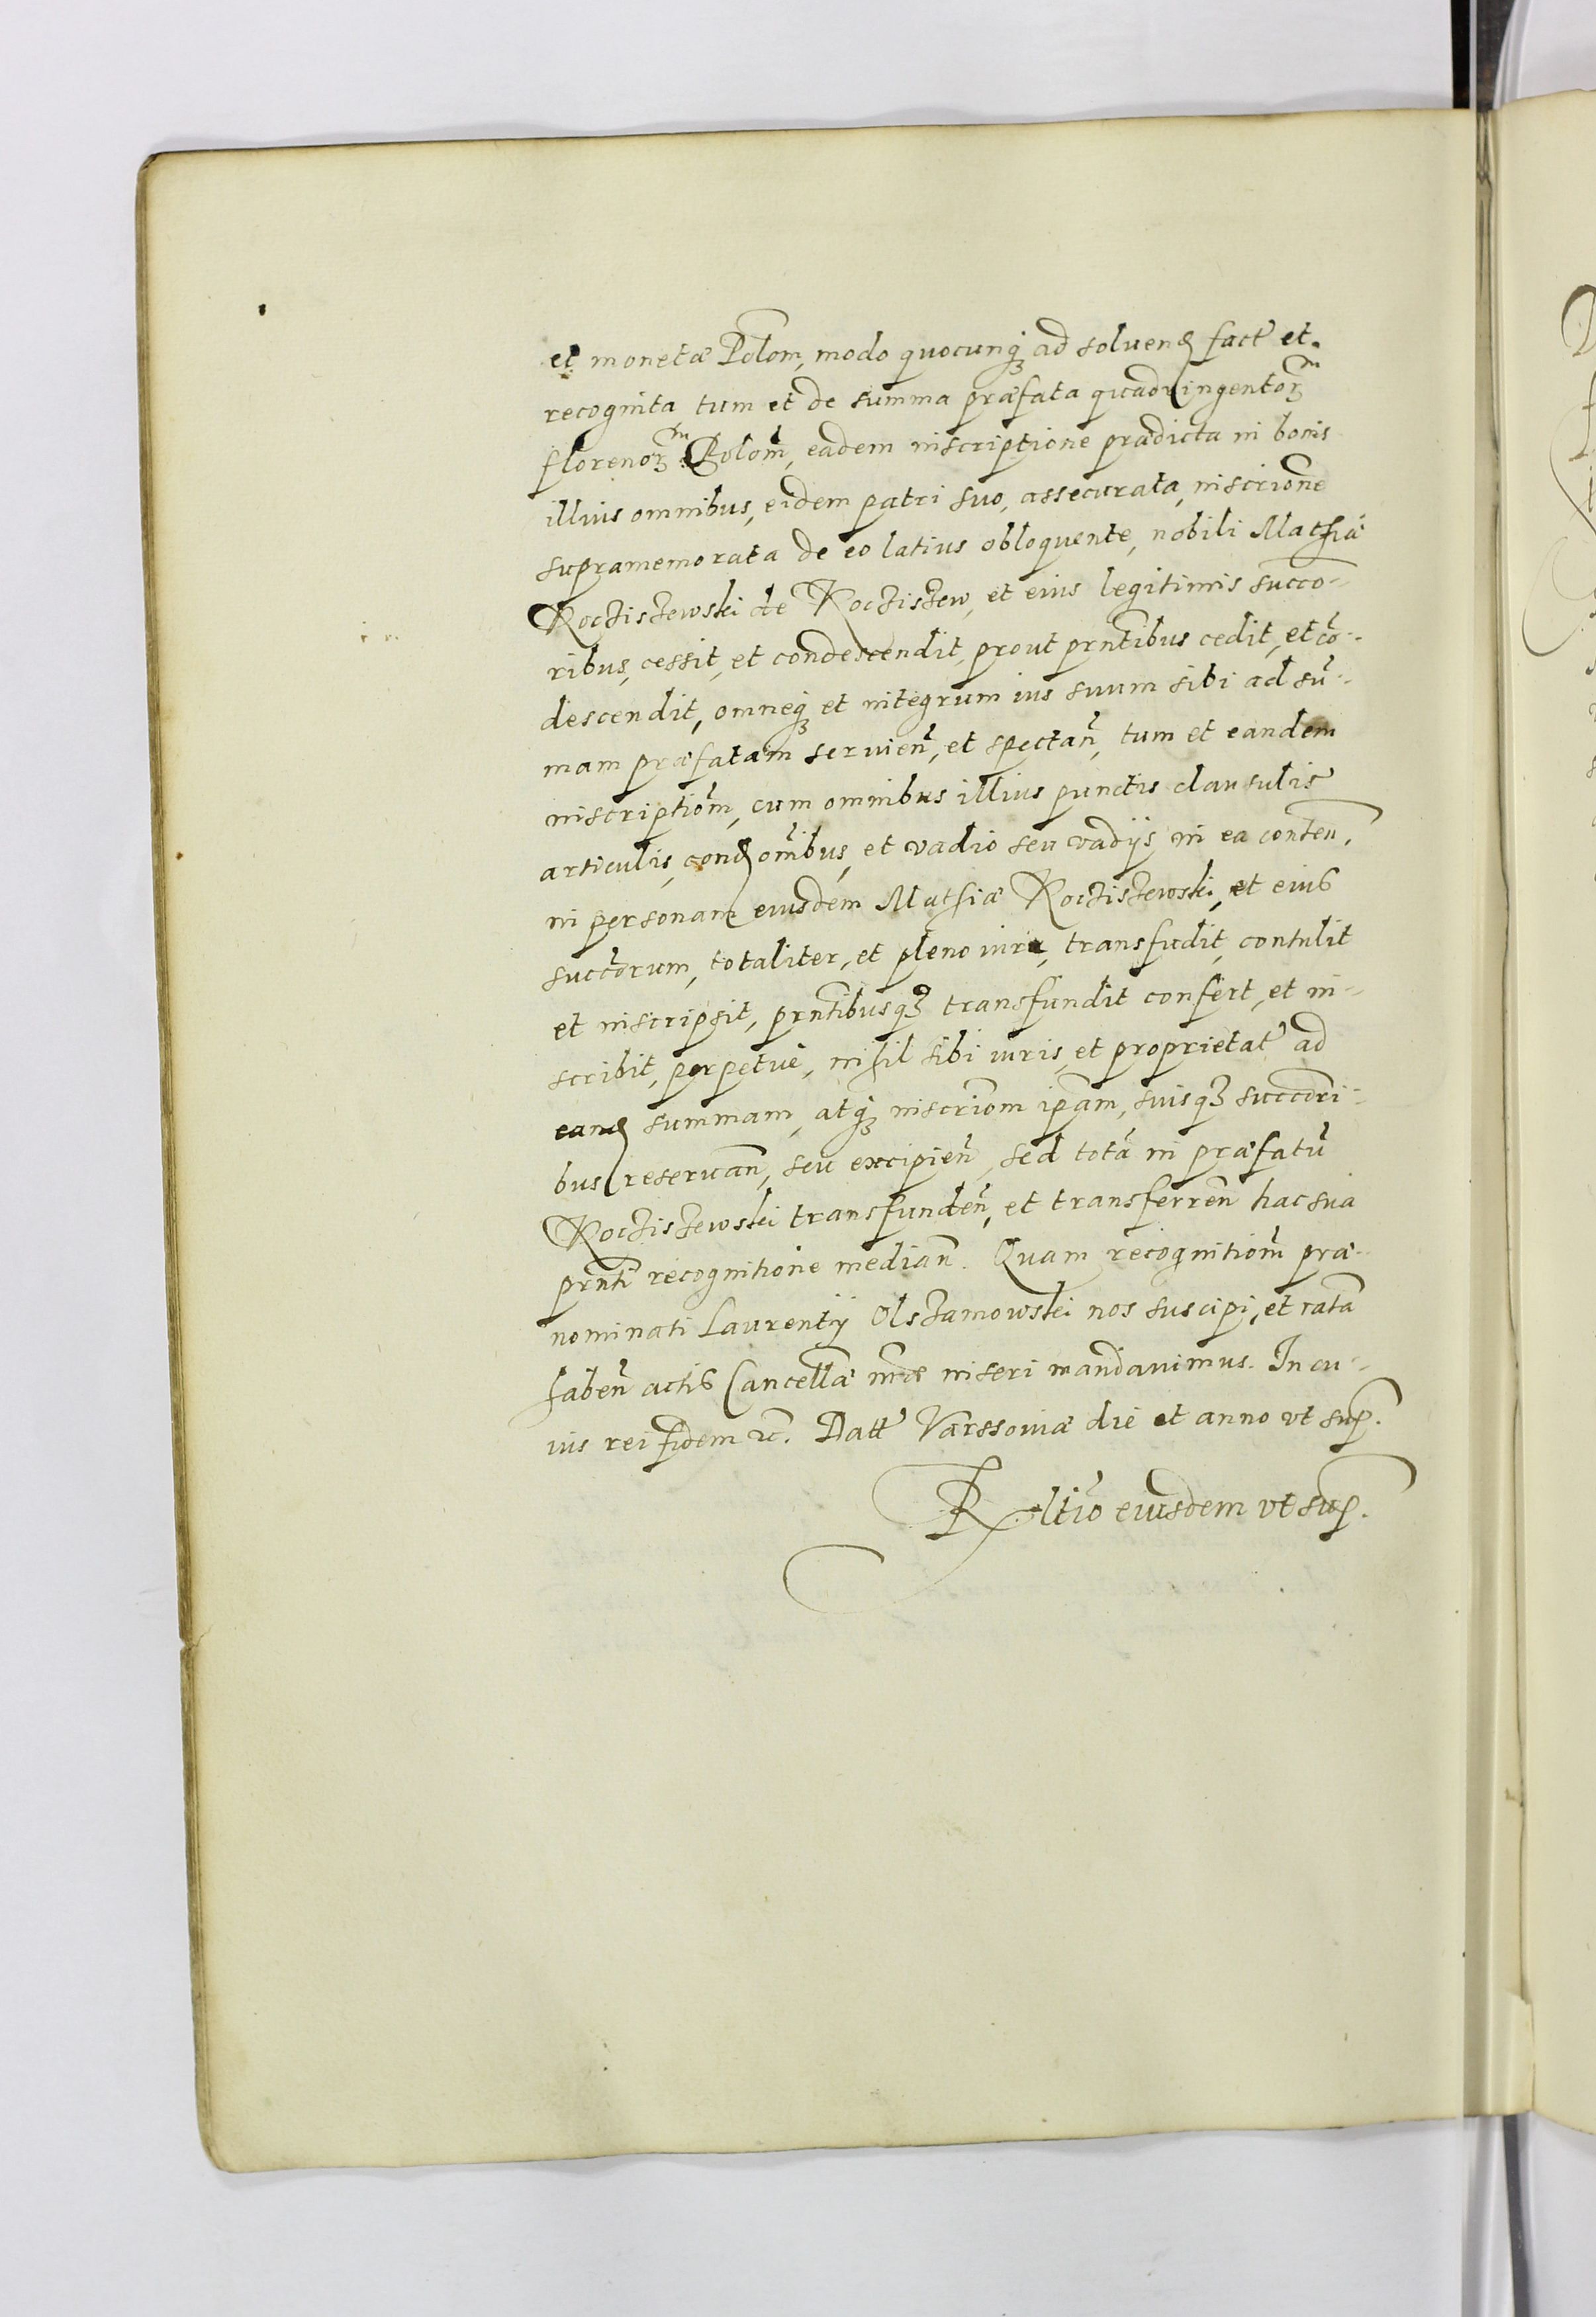 et monetæ Polom, modo quocunq₃ ad soluend fact et
recognita tum et de summa præfata quadringentorᵐ
florenorᵐ Polom̃, eadem inscriptione prædicta in bonis
illius omnibus, eidem patri suo, assecurata, inscrione
supramemorata de eo latius obloquente, nobili Mathiæ
Rocziszewski de Rocziszew, et eius legitimis succo-
ribus, cessit, et condescendit, prout prntibus cedit, et cõ-
descendit, omneq₃ et integrum ius suum sibi ad sũ-
mam præfatam seruieñ, et spectañ, tum et eandem
inscriptiom̃, cum omnibus illius punctis clausulis
articulis, cond omibus, et vadio seu vadijs in ea conten,
in personam eiusdem Mathiæ Rocziszewski, et eius
succorum, totaliter, et pleno iure, transfudit, contulit
et inscripsit, prntibusq₃ transfundit confert, et in-
scribit, perpetue, nihil sibi iuris, et proprietat ad
eand summam, atq₃ inscriom ipam, suisq₃ succori-
bus reseruañ, seu excipieñ, sed totã in præfatũ
Rocziszewski transfundeñ, et transferreñ hac sua
prnti recognitione mediañ. Quam recognitiom̃ præ-
nominati Laurentij Olszamowski nos suscipi, et ratã
habeñ actis Cancellæ nræ inseri mandauimus. In cu-
ius rei fidem ꝛc. Datt Varssouiæ die et anno vt sup.
Reltio eiusdem vt sup.